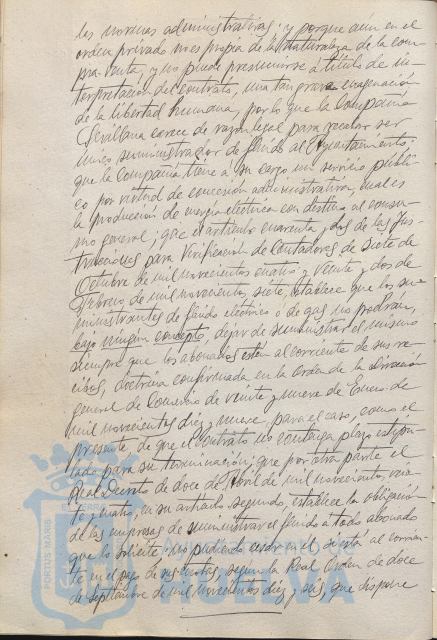 las normas administrativas; y porque aun en el
orden privado no es propia de la naturaleza de la com-
pra-venta, y no puede presumirse á título de in-
terpretación del contrato, una tan grave enagenación
de la libertad humana, por lo que la Compañía
Sevillana carece de razón legal para recabar ser
único suministrador de fluido al Ayuntamiento;
que la Compañía tiene á su cargo un servicio públi-
co por virtud de concesión administrativa, cual es
la producción de energía eléctrica con destino al consu-
mo general; que el artículo cuarenta y dos de las Ins-
trucciones para Verificación de Contadores de siete de
Octubre de mil novecientos cuatro y veinte y dos de
Febrero de mil novecientos siete, establece que los su-
ministrantes de fluido eléctrico ó de gas no podrán,
bajo ningún concepto, dejar de suministrar el mismo
siempre que los abonados estén al corriente de sus re-
cibos, doctrina confirmada en la Orden de la Dirección
general de Comercio de veinte y nueve de Enero de
mil novecientos diez y nueve, para el caso, como el
presente, de que el contrato no contenga plazo estipu-
lado para su terminación; que por otra parte el
Real Decreto de doce de Abril de mil novecientos vein-
te y cuatro, en su artículo segundo, establece la obligación
de las empresas de suministrar el fluido a todo abonado
que lo solicite, no pudiendo cesar en él si está al corrien-
te en el pago de sus cuotas, según la Real Orden de doce
de Septiembre de mil novecientos diez y seis, que dispone
PORTUS MARIS
Ayuntamiento de
HUELVA